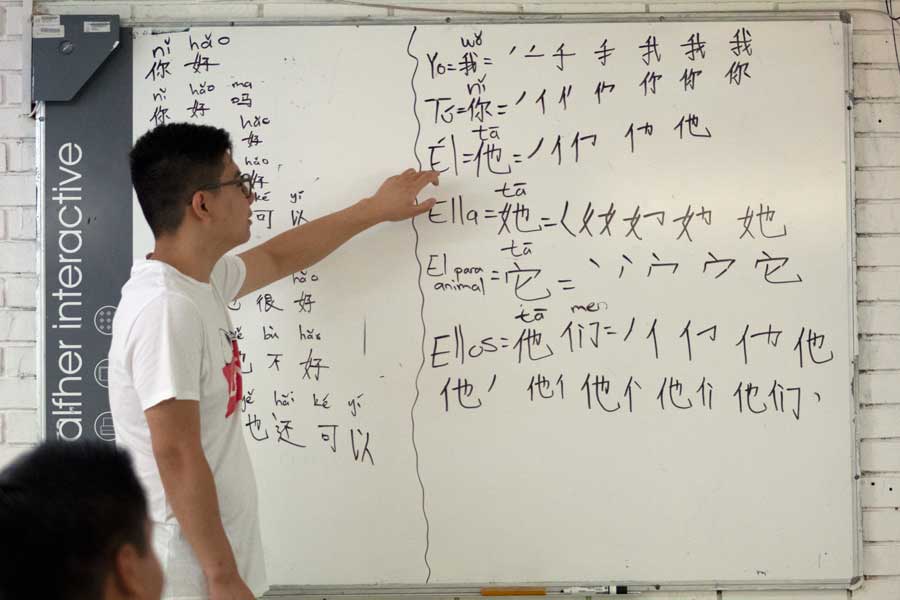 alfher interactive
nǐ hǎo
你 好
nǐ hǎo ma
你 好 吗
hǎo
好
hǎo
好
ké yǐ
可 以
hǎo
很 好
bù hǎo
不 好
yě hāi ké yǐ
也 还 可 以
wǒ
Yo=我= 我 我 我
nǐ
Tú=你= 你 你 你
tā
Él=他= 他
tā
Ella=她= 她
tā
El para animal=它= 它
tā men
Ellos=他 们= 他
他 他 他 他 他们